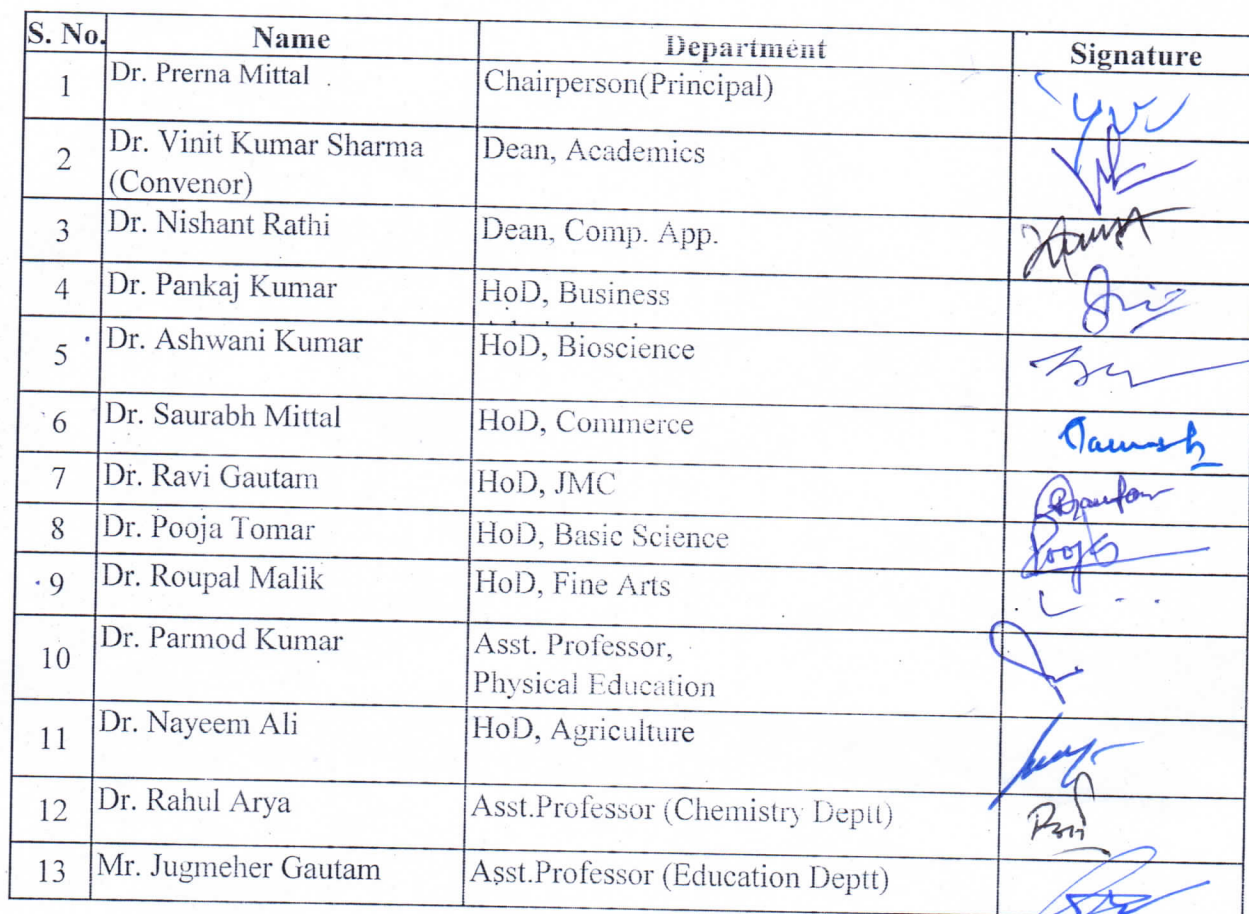 S. No. Name Department Signature
1 Dr. Prerna Mittal Chairperson(Principal)
2 Dr. Vinit Kumar Sharma Dean, Academics
(Convenor)
3 Dr. Nishant Rathi Dean, Comp. App.
4 Dr. Pankaj Kumar HoD, Business
5 Dr. Ashwani Kumar HoD, Bioscience
6 Dr. Saurabh Mittal HoD, Commerce
7 Dr. Ravi Gautam HoD, JMC
8 Dr. Pooja Tomar HoD, Basic Science Pooja
9 Dr. Roupal Malik HoD, Fine Arts
10 Dr. Parmod Kumar Asst. Professor,
Physical Education
11 Dr. Nayeem Ali HoD, Agriculture
12 Dr. Rahul Arya Asst.Professor (Chemistry Deptt)
13 Mr. Jugmeher Gautam Asst.Professor (Education Deptt)